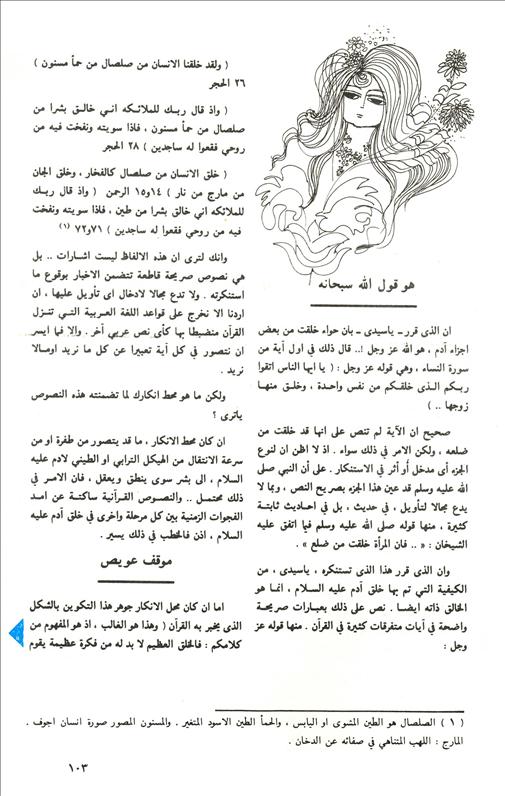 هو قول الله سبحانه
ان الذى قرر ــ ياسيدى ــ بان حواء خلقت من بعض
اجزاء آدم ، هو الله عز وجل !.. قال ذلك في اول آية من
سورة النساء ، وهي قوله عز وجل : ( يا ايها الناس اتقوا
ربكم الـذى خلقـكم من نفس واحـدة ، وخلـق منهـا
زوجها .. )
صحيح ان الآية لم تنص على انها قد خلقت من
ضلعه ، ولكن الامر في ذلك سواء . اذ لا اظن ان لنوع
الجزء أى مدخل أو أثر في الاستنكار . على أن النبي صلى
الله عليه وسلم قد عين هذا الجزء بصريح النص ، وبما لا
يدع مجالا لتأويل ، في حديث ، بل في احاديث ثابتـة
كثيرة ، منها قوله صلى الله عليه وسلم فيما اتفق عليه
الشيخان : « .. فان المرأة خلقت من ضلع » .
وان الذى قرر هذا الذى تستنكره ، ياسيدى ، من
الكيفية التي تم بها خلق آدم عليه السـلام ، انمـا هو
الخالق ذاته ايضـا . نص على ذلك بعبـارات صريحـة
واضحة في آيات متفرقات كثيرة في القرآن . منها قوله عز
وجل :
( ولقد خلقنا الانسان من صلصال من حمأ مسنون )
٢٦ الحجر
( واذ قال ربـك للملائـكه انـي خالـق بشرا من
صلصال من حمأ مسنون ، فاذا سويته ونفخت فيه من
روحي فقعوا له ساجدين ) ٢٨ الحجر
( خلق الانسان من صلصال كالفخار ، وخلق الجان
من مارج من نار ) ١٤و١٥ الرحمن ( واذ قال ربـك
للملائكه اني خالق بشرا من طين ، فاذا سويته ونفخت
فيه من روحي فقعوا له ساجدين ) ٧١و٧٢ (١)
وانك لترى ان هذه الالفاظ ليست اشارات .. بل
هي نصوص صريحة قاطعة تتضمن الاخبار بوقوع ما
استنكرته . ولا تدع مجالا لادخال اى تأويل عليها ، ان
اردنا الا نخرج على قواعد اللغة العربية التـي تنـزل
القرآن منضبطا بها كأى نص عربي آخر . وإلا فما ايسر
ان نتصور في كل آية تعبيرا عن كل ما نريد اومـالا
نريد .
ولكن ما هو محط انكارك لما تضمنته هذه النصوص
ياترى ؟
ان كان محط الانكار ، ما قد يتصور من طفرة او من
سرعة الانتقال من الهيكل الترابي او الطيني لادم عليه
السلام ، الى بشر سوى ينطق ويعقل ، فان الامـر في
ذلك محتمـل .. والنصـوص القرآنية ساكتـة عن امـد
الفجوات الزمنية بين كل مرحلة واخرى في خلق آدم عليه
السلام ، اذن فالخطب في ذلك يسير .
موقف عويص
اما ان كان محل الانكار جوهر هذا التكوين بالشكل
الذى يخبر به القرآن ( وهذا هو الغالب ، اذ هو المفهوم من
كلامكم : فالخلق العظيم لا بد له من فكرة عظيمة يقوم
( ١ ) الصلصال هو الطين المشوى او اليابس ، والحمأ الطين الاسود المتغير . والمسنون المصور صورة انسان اجوف .
المارج : اللهب المتناهي في صفائه عن الدخان .
١٠٣